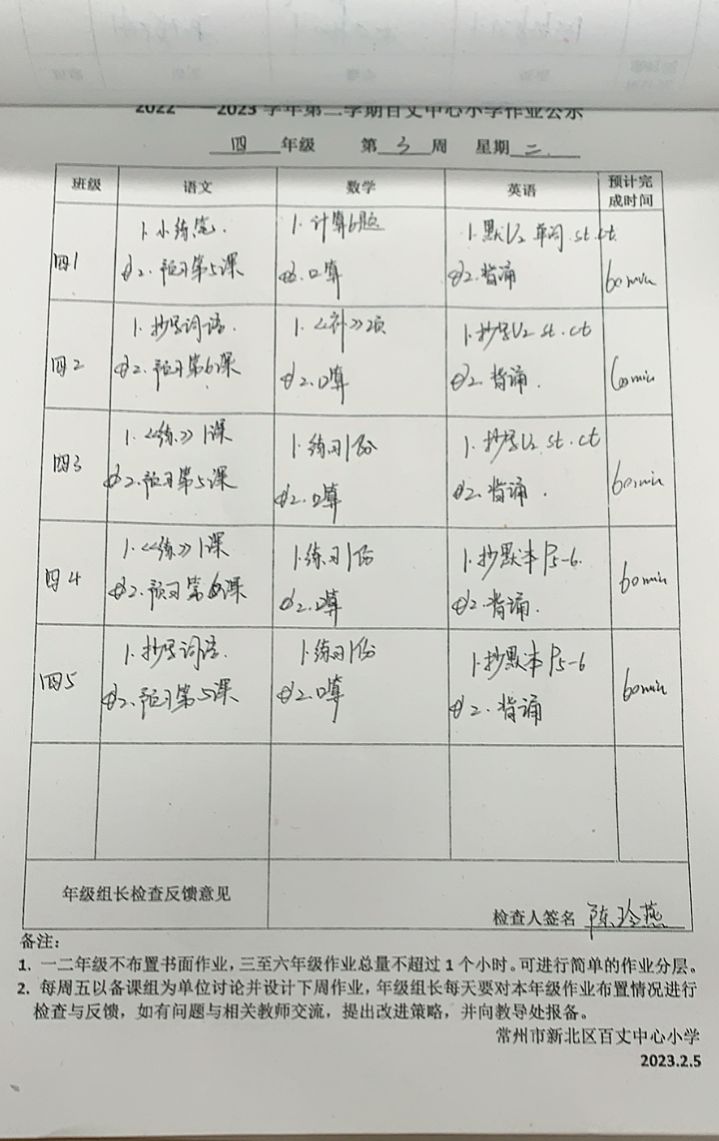 2022——2023学年第二学期百丈中心小学作业公示
四 年级 第 3 周 星期 二
班级 语文 数学 英语 预计完成时间
四1
1. 小练笔.
2. 预习第5课
1. 计算6题
2. 口算
1. 默U2 单词 st. ct.
2. 背诵
60min
四2
1. 抄写词语.
2. 预习第6课
1. 《补》2页
2. 口算
1. 抄写U2 st. ct
2. 背诵.
60min
四3
1. 《练》1课
2. 预习第5课
1. 练习1份
2. 口算
1. 抄写U2 st. ct
2. 背诵.
60min
四4
1. 《练》1课
2. 预习第6课
1. 练习1份
2. 口算
1. 抄默本P5-6.
2. 背诵.
60min
四5
1. 抄写词语.
2. 预习第5课
1. 练习1份
2. 口算
1. 抄默本P5-6
2. 背诵
60min
年级组长检查反馈意见
检查人签名 陈玲燕
备注:
1. 一二年级不布置书面作业,三至六年级作业总量不超过1个小时。可进行简单的作业分层。
2. 每周五以备课组为单位讨论并设计下周作业,年级组长每天要对本年级作业布置情况进行
检查与反馈,如有问题与相关教师交流,提出改进策略,并向教导处报备。
常州市新北区百丈中心小学
2023.2.5